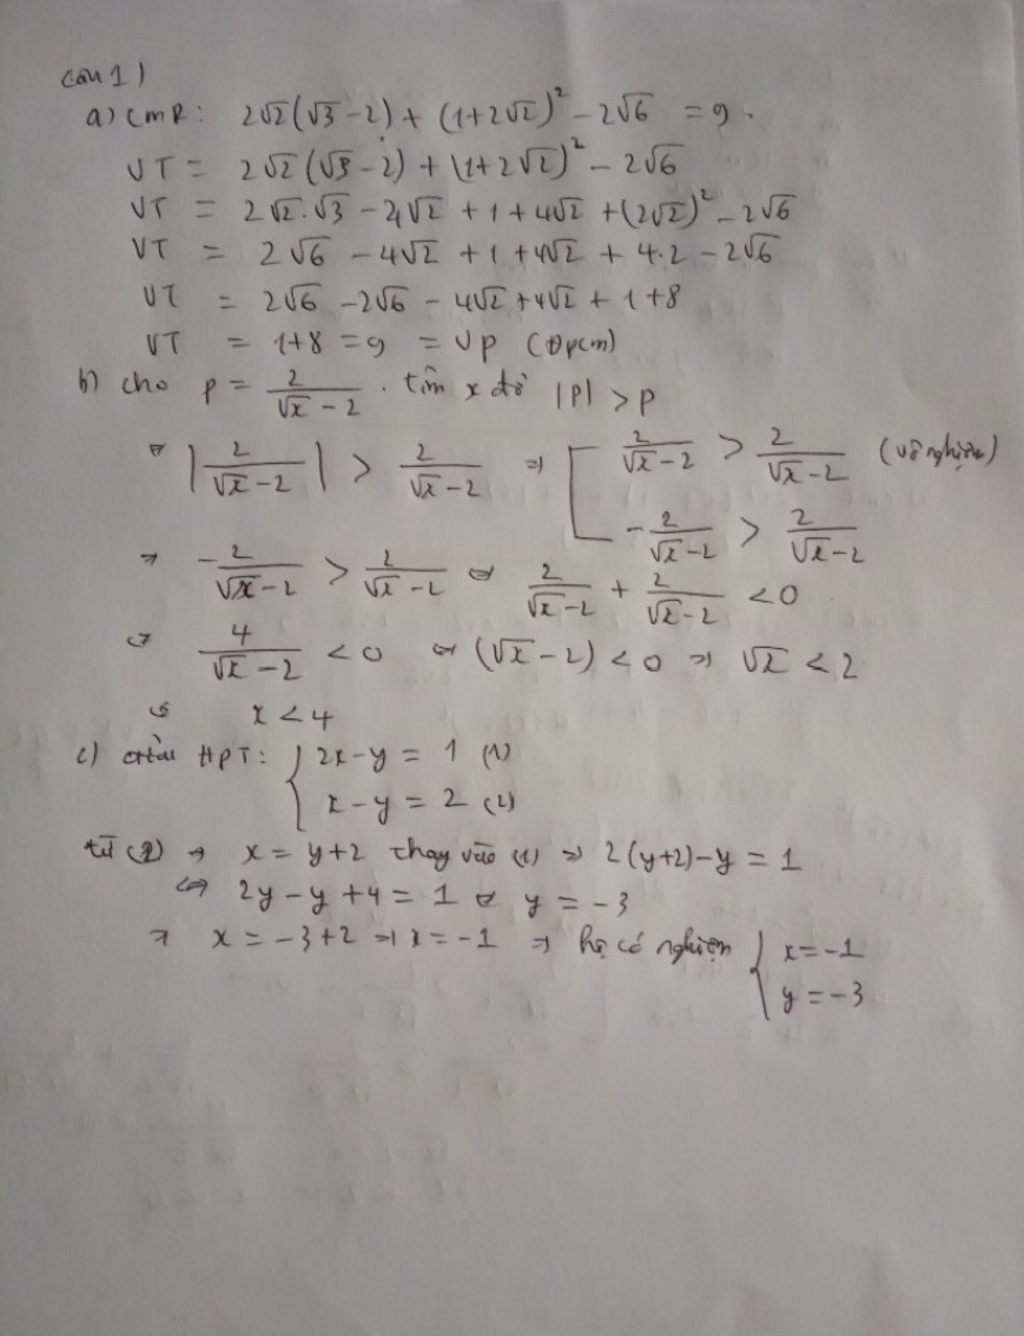 Câu 1)
a) CMR: 2√2(√3 - 2) + (1+2√2)² - 2√6 = 9.
VT = 2√2(√3 - 2) + (1+2√2)² - 2√6
VT = 2√2.√3 - 4√2 + 1 + 4√2 + (2√2)² - 2√6
VT = 2√6 - 4√2 + 1 + 4√2 + 4.2 - 2√6
VT = 2√6 - 2√6 - 4√2 + 4√2 + 1 + 8
VT = 1+8 = 9 = VP (Đpcm)
b) cho P = 2/(√x - 2) . tìm x để |P| > P
⇔ |2/(√x - 2)| > 2/(√x - 2) ⇒ [ 2/(√x - 2) > 2/(√x - 2) (vô nghiệm)
- 2/(√x - 2) > 2/(√x - 2)
⇒ - 2/(√x - 2) > 2/(√x - 2) ⇔ 2/(√x - 2) + 2/(√x - 2) < 0
⇔ 4/(√x - 2) < 0 ⇔ (√x - 2) < 0 ⇒ √x < 2
⇔ x < 4
c) Giải HPT: { 2x - y = 1 (1)
x - y = 2 (2)
từ (2) → x = y+2 thay vào (1) ⇒ 2(y+2) - y = 1
⇔ 2y - y + 4 = 1 ⇔ y = -3
⇒ x = -3+2 ⇒ x = -1 ⇒ hệ có nghiệm { x = -1
y = -3